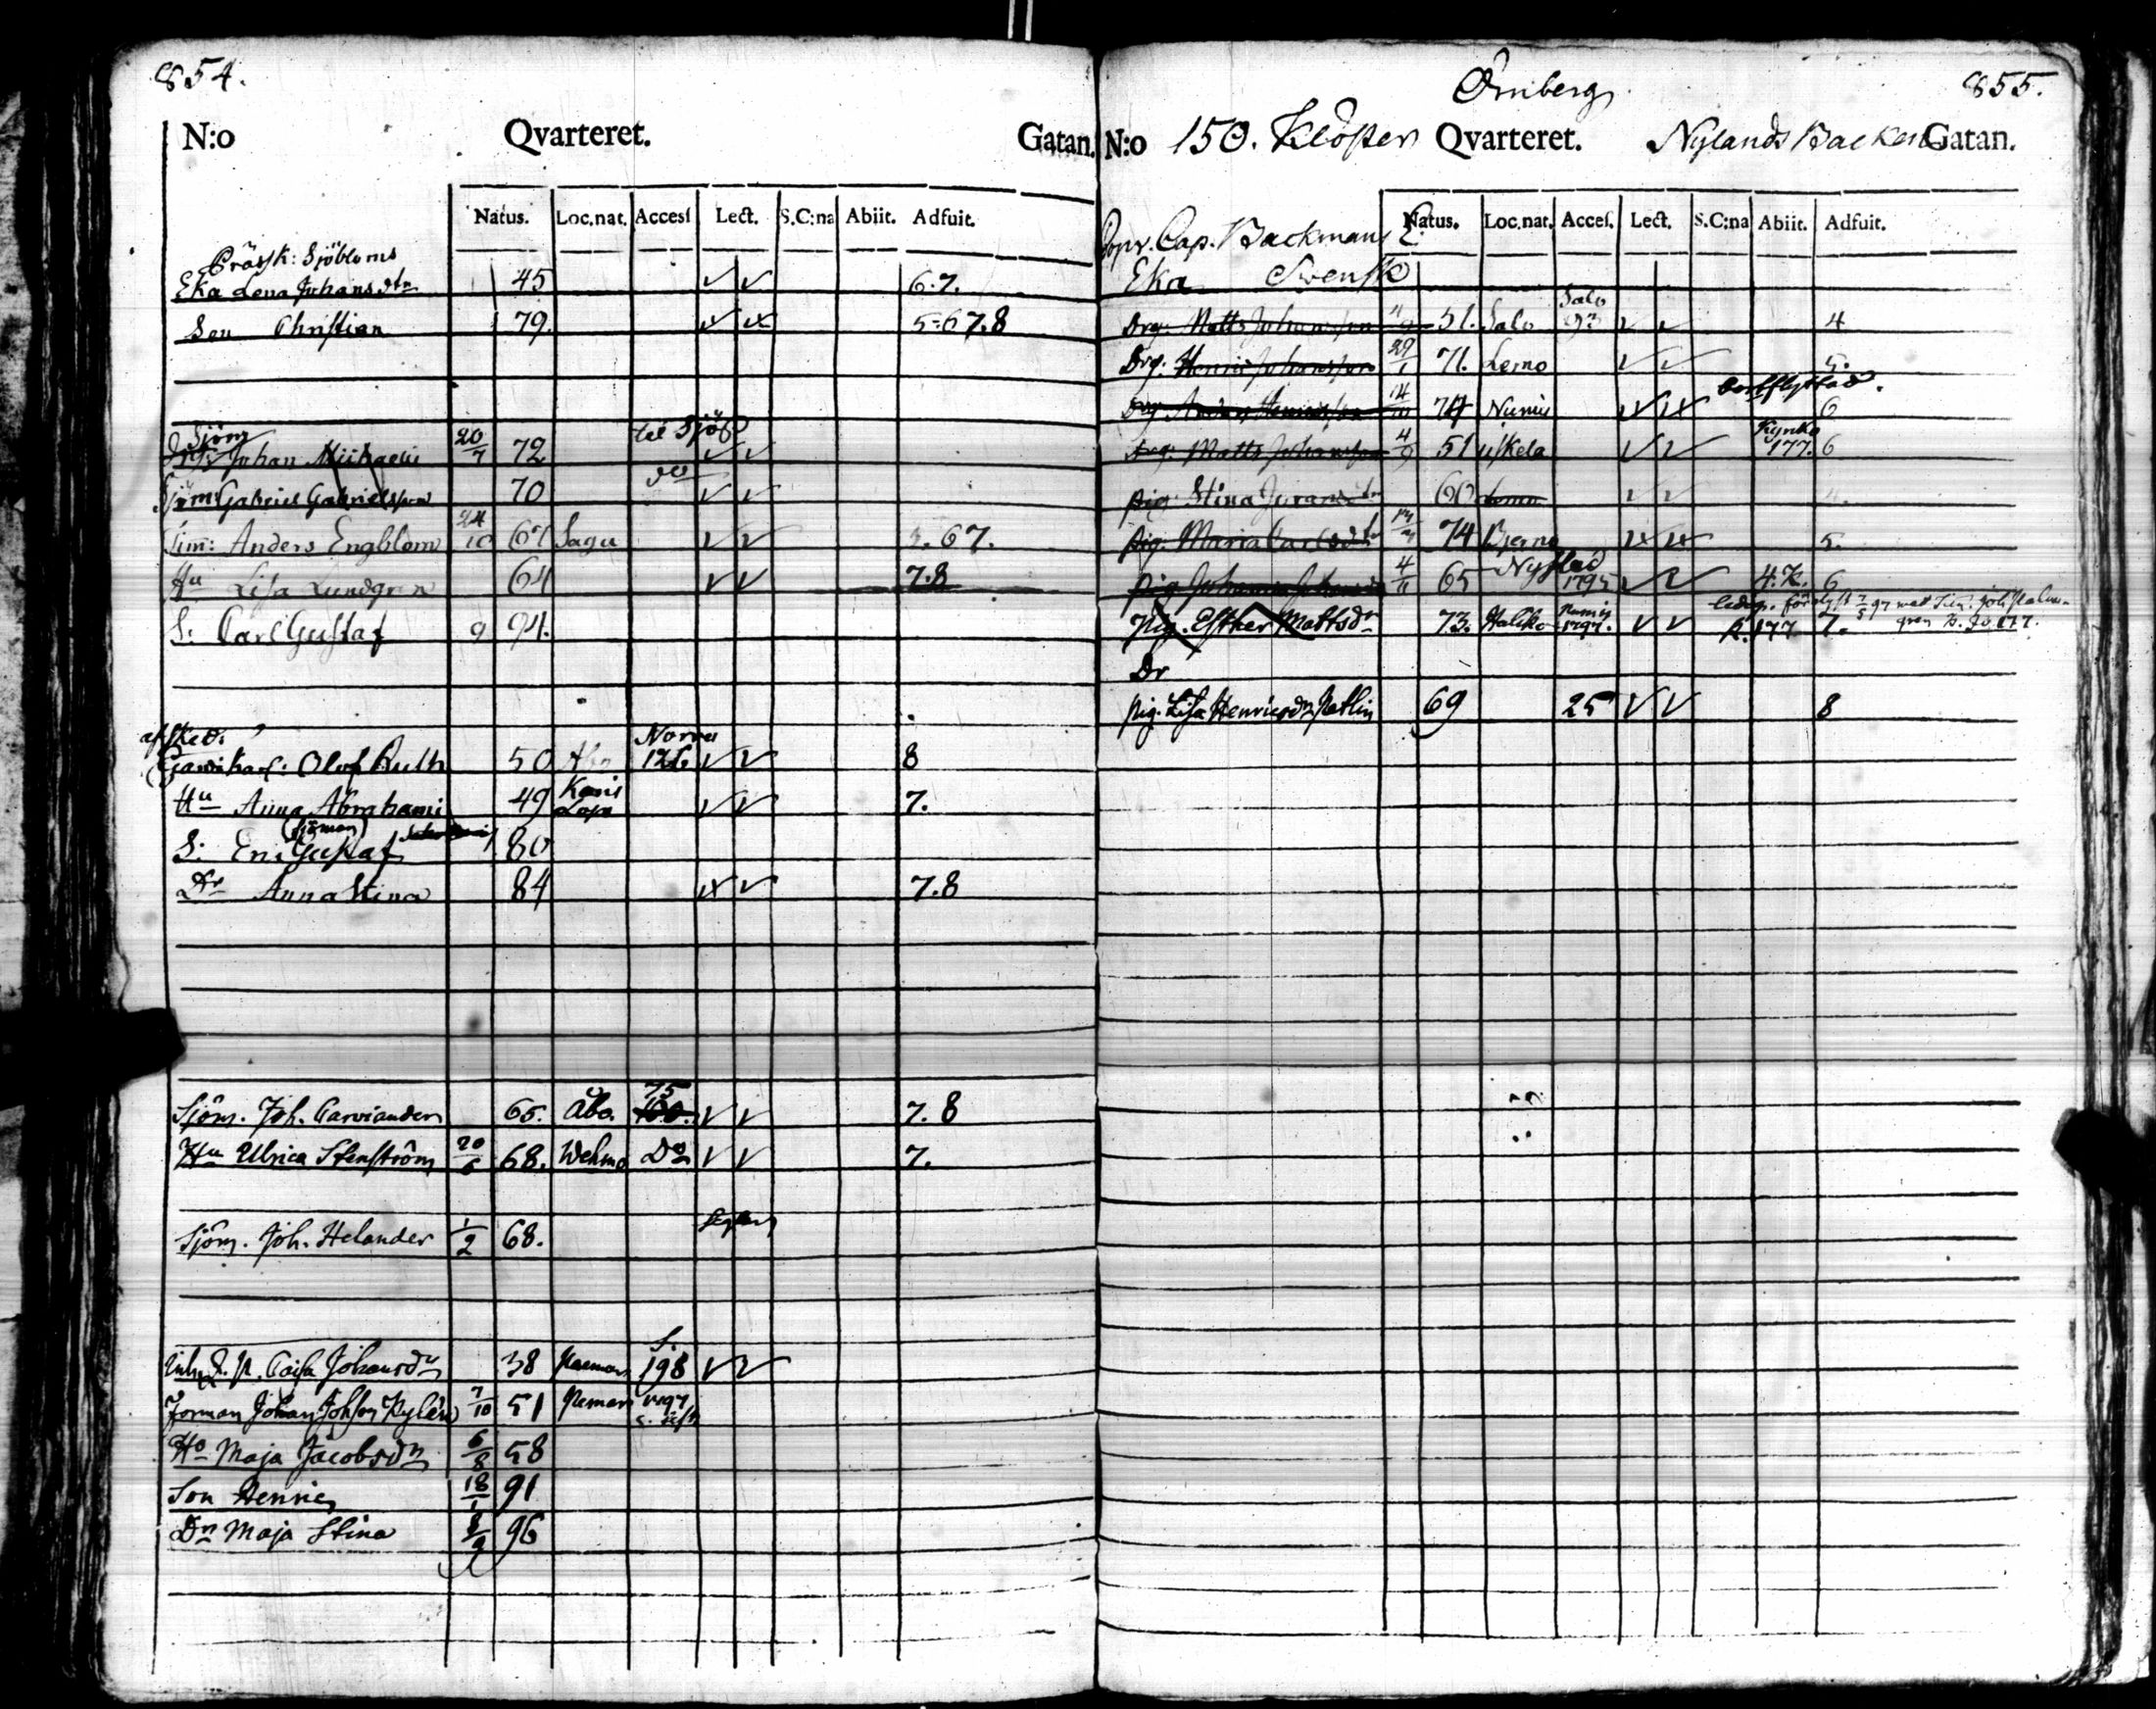 854.
N:o Qvarteret. Gatan.
Natus. Loc.nat. Access Lect. S.C:na Abiit. Adfuit.
Sjöbloms
Eka Lena Johans dtr 45 6.7.
Son Christian 79. 5.6 7.8
Sjöm
Johan Michaelis 20/7 72 til Sjös
Sjöm: Gabriel Gabrielsson 70 do
Tim: Anders Engblom 24/10 67 Sagu 67.
Hu Lisa Lundgren 64 7.8
S: Carl Gustaf 9 94.
afsked:
Olof Ruth 50 Åbo Norra 126 8
Hu Anna Abrahami 49 7.
(Sjöman)
S: Eric Gustaf 80
Dr Anna Stina 84 7.8
Sjöm. Joh. Carviander 65. Åbo. 75 7. 8
Hu Ulrica Stenström 20/6 68. Wehmo Do 7.
Sjöm. Joh. Helander 1/2 68.
Caisa Johansdr 38 S. 198
Johan Johsson Kylén 7/10 51 Pemar 1797
Ho Maja Jacobsdr 6/8 58
Son Henric 18/1 91
Dr Maja Stina 8/9 96
855.
Örnberg
N:o 150. Kloster Qvarteret. Nylands Backen Gatan.
Natus. Loc.nat. Acces. Lect. S.C:na Abiit. Adfuit.
Cap. Backmans
Eka Svensk
Drg: Matts Johansson 4/9 51. Salo Salo 93 4
Drg: Henric Johansson 29/1 71. Lemo 5.
Drg Anders Henricsson 14 74 Numis bortflyttad. 6
Drg: Matts Johansson 4/9 51 Uskela Kynko 177. 6
pig: Stina Jörans dtr 60 Lemo 4.
pig: Maria Carlsdtr 74 Bjerno 5.
pig Johanna 4/11 65 Nystad 1795 H.K. 6
Pig. Esther Mattsdr 73. Haliko Numis 1797. K. 177 7.
Dr
pig. Lisa Henricsdr 69 25 8